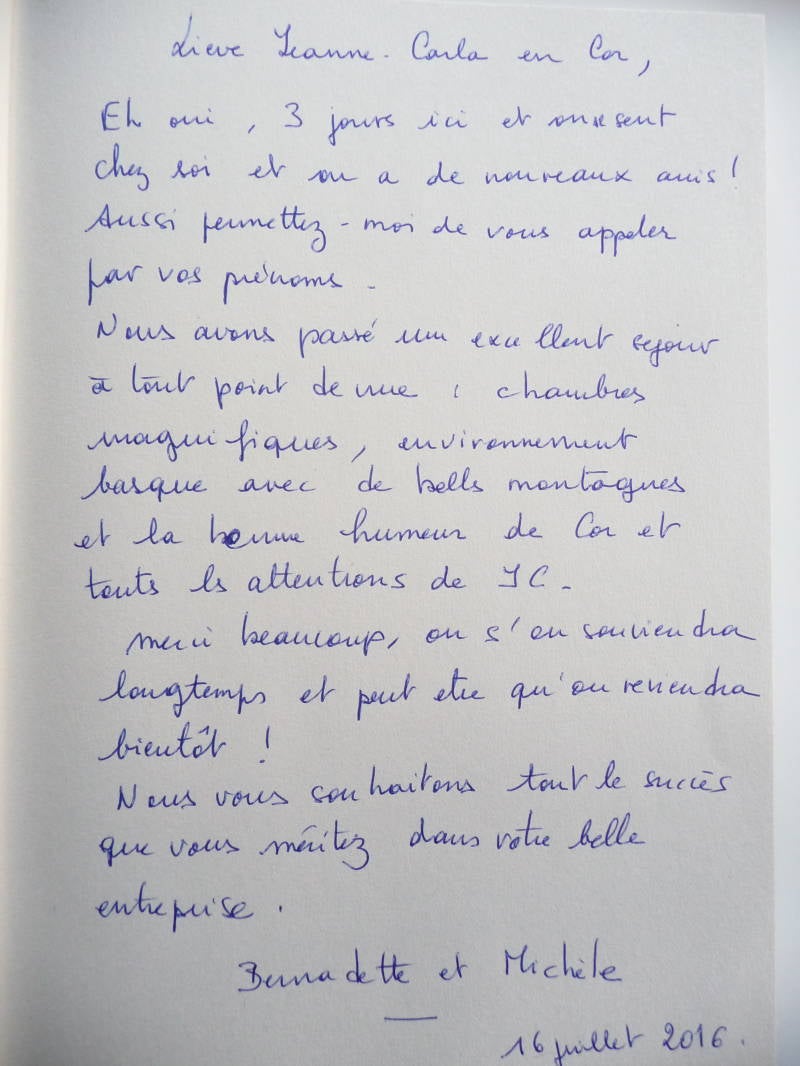 Lieve Jeanne-Carla en Cor,
Eh oui, 3 jours ici et on se sent
chez soi et on a de nouveaux amis !
Aussi permettez-moi de vous appeler
par vos prénoms.
Nous avons passé un excellent sejour
à tout point de vue : chambres
magnifiques, environnement
basque avec de bells montagnes
et la bonne humeur de Cor et
touts ls attentions de JC.
Merci beaucoup, on s'en souviendra
longtemps et peut etre qu'on reviendra
bientôt !
Nous vous souhaitons tout le succès
que vous méritez dans votre belle
entreprise.
Bernadette et Michèle
16 juillet 2016.